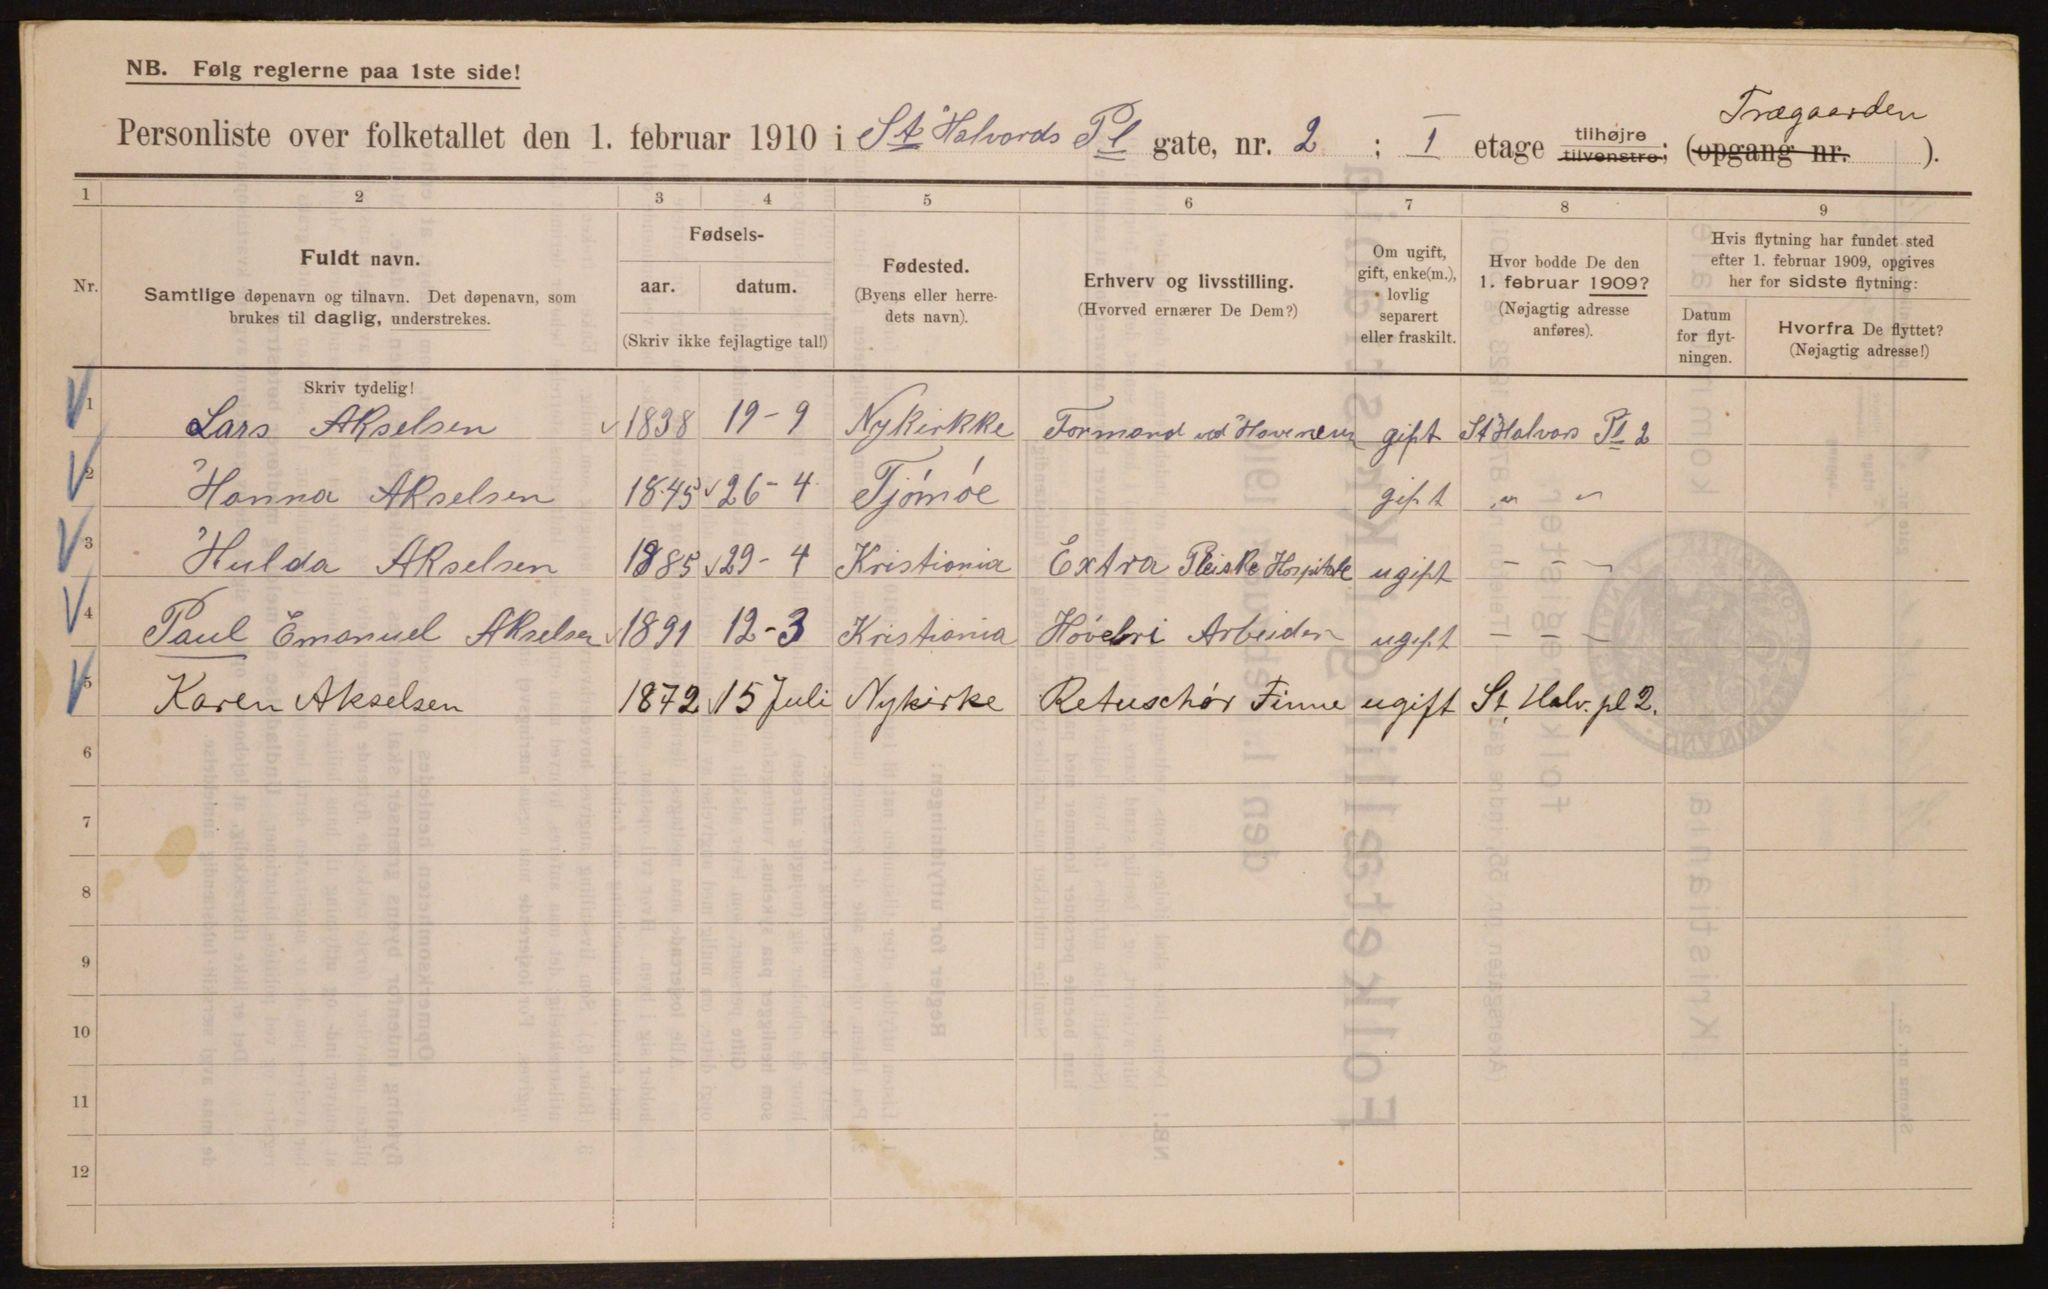 NB. Følg reglerne paa 1ste side!
Trægaarden
Personliste over folketallet den 1. februar 1910 i St. Halvards Pl gate, nr. 2 ; I etage tilhøjre tilvenstre; (opgang nr. ).
1 2 3 4 5 6 7 8 9
Nr.
Fuldt navn.
Samtlige døpenavn og tilnavn. Det døpenavn, som
brukes til daglig, understrekes.
Fødsels-
aar. datum.
(Skriv ikke fejlagtige tal!)
Fødested.
(Byens eller herre-
dets navn).
Erhverv og livsstilling.
(Hvorved ernærer De Dem?)
Om ugift,
gift, enke(m.),
lovlig
separert
eller fraskilt.
Hvor bodde De den
1. februar 1909?
(Nøjagtig adresse
anføres).
Hvis flytning har fundet sted
efter 1. februar 1909, opgives
her for sidste flytning:
Datum
for flyt-
ningen.
Hvorfra De flyttet?
(Nøjagtig adresse!)
Skriv tydelig!
1 Lars Akselsen 1838 19-9 Nykirkke Formand ved gift St Halvars Pl 2
2 Hanna Akselsen 1845 26-4 Tjømøe gift " "
3 Hulda Akselsen 1885 29-4 Kristiania Extra Pleiske Hospitale ugift - - -
4 Paul Emanuel Akselsen 1891 12-3 Kristiania Høvelri Arbeider ugift - - -
5 Karen Akselsen 1872 15 Juli Nykirke Retuschør Finne ugift St. Halv. pl 2.
6
7
8
9
10
11
12